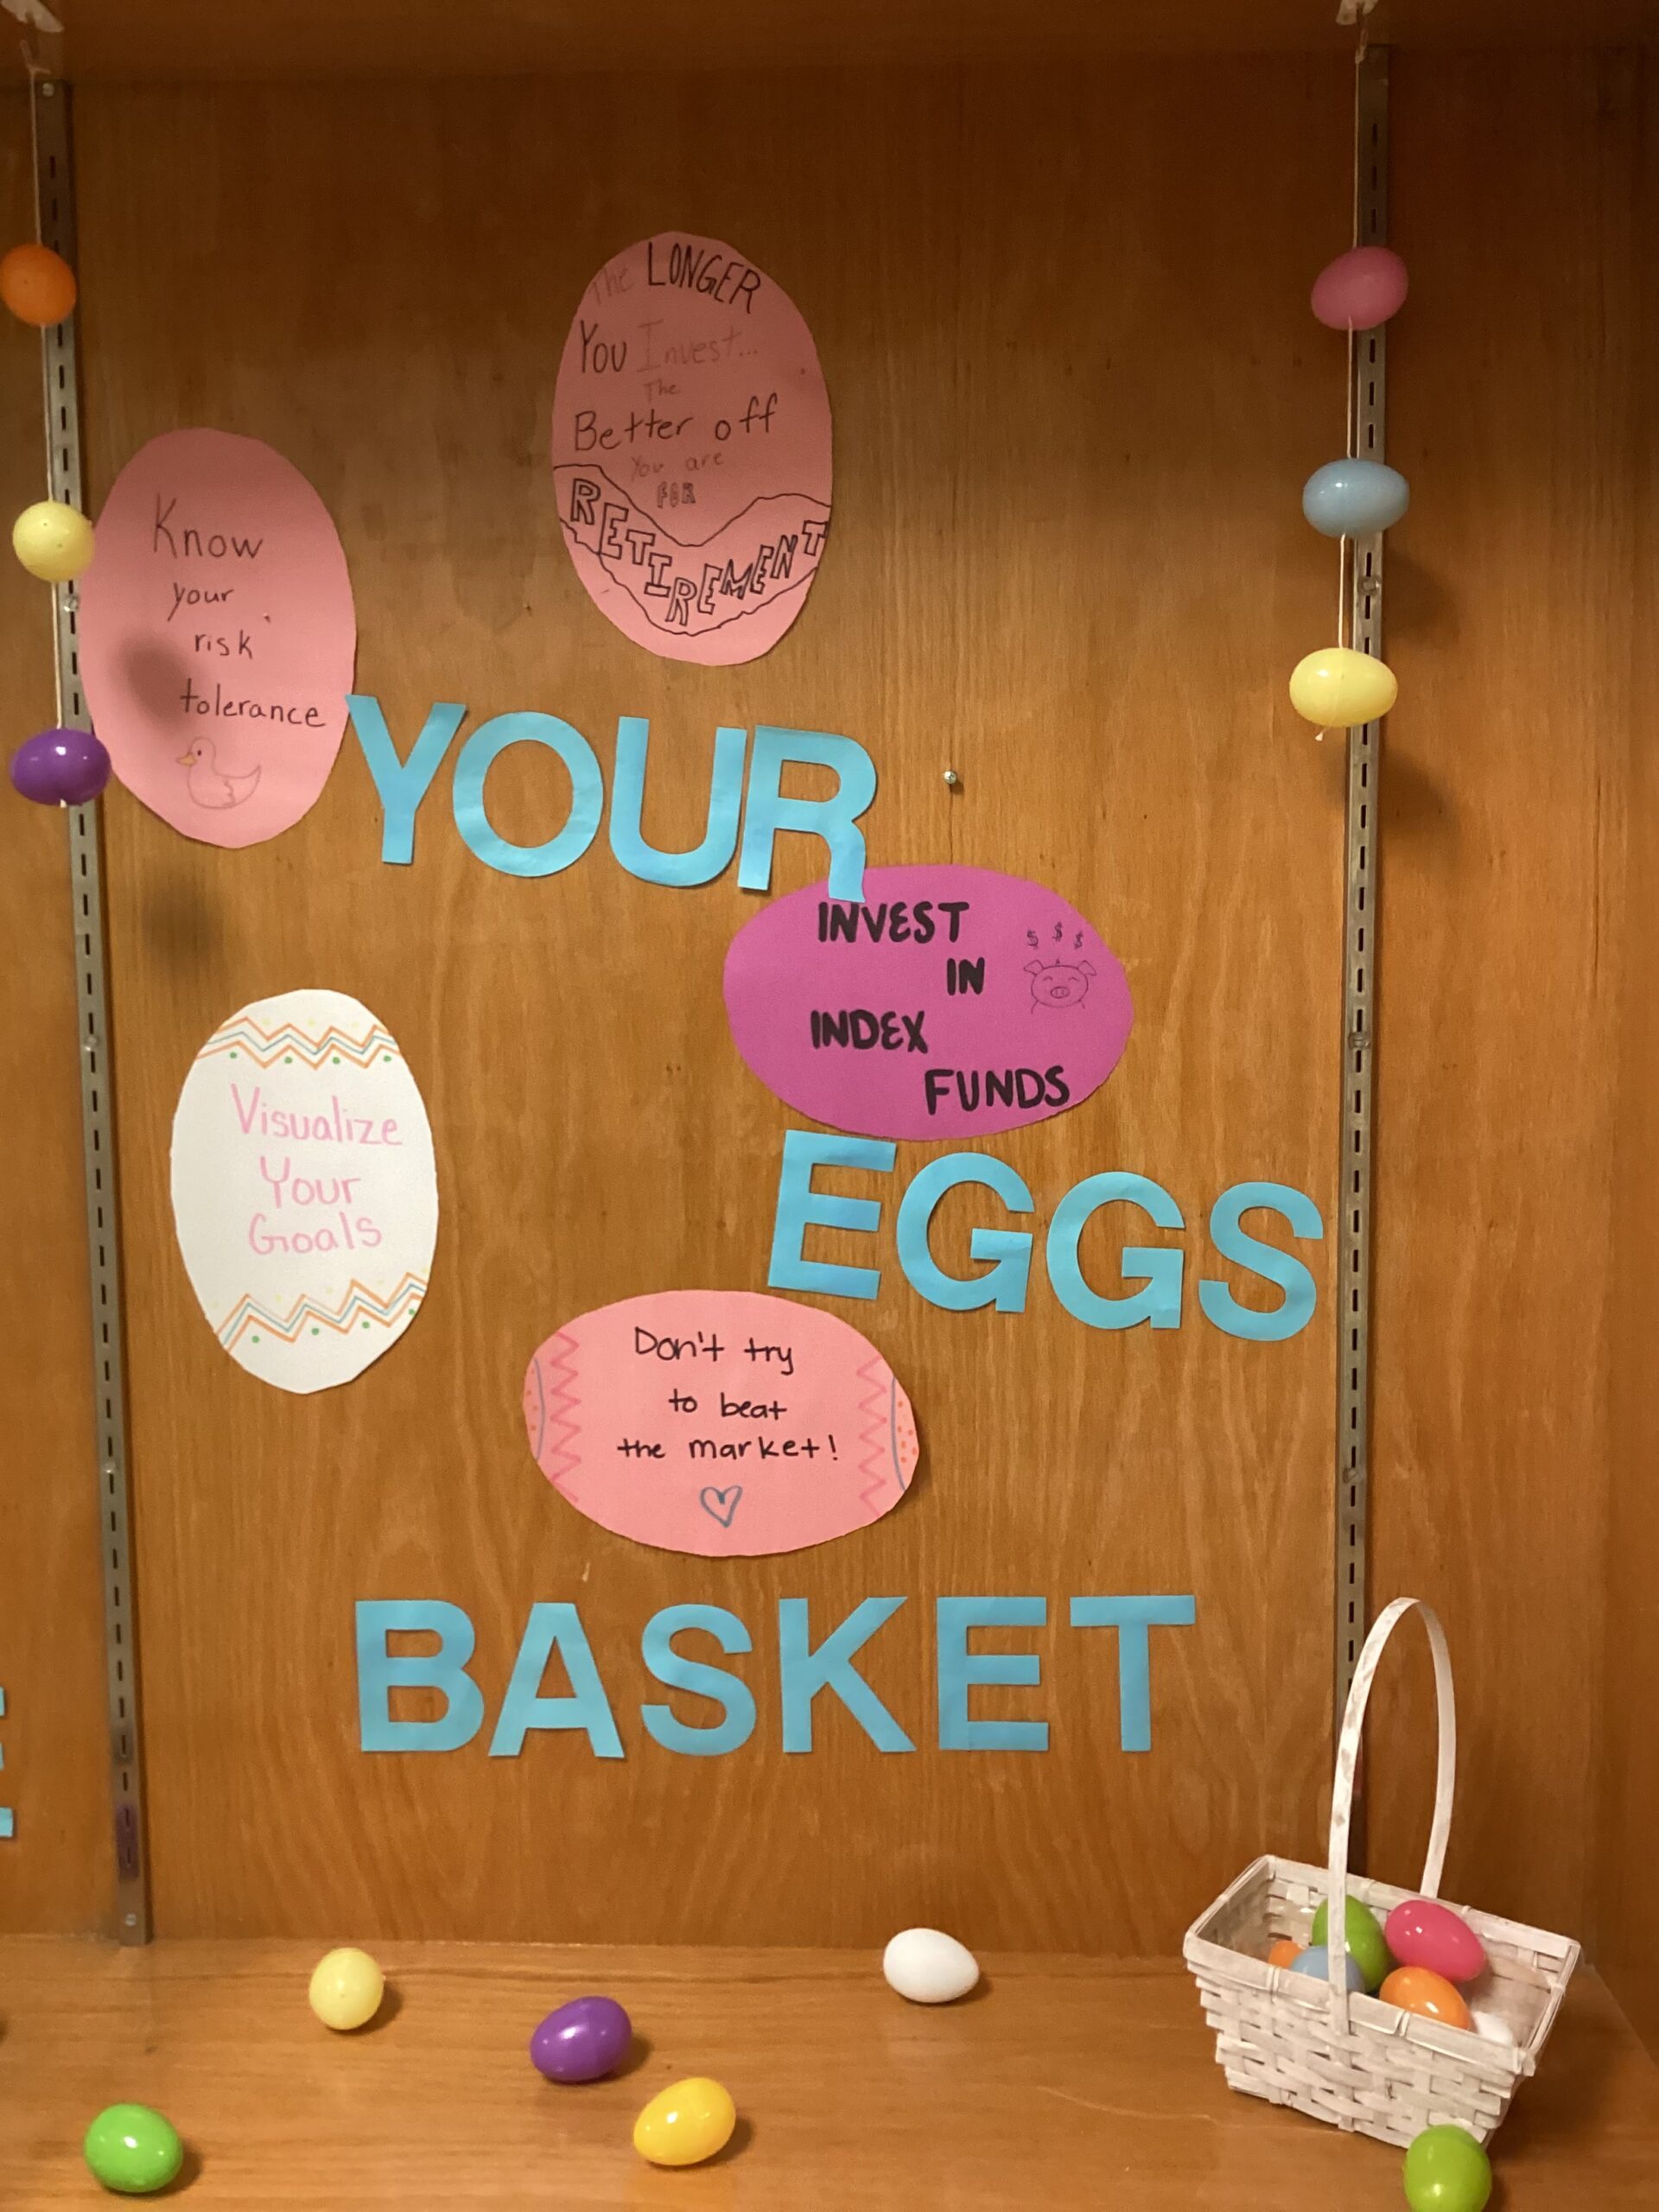 The LONGER
You Invest...
The
Better off
You are
FOR
RETIREMENT
Know
your
risk
tolerance
YOUR
INVEST
IN
INDEX
FUNDS
$ $ $
Visualize
Your
Goals
EGGS
Don't try
to beat
the market!
BASKET